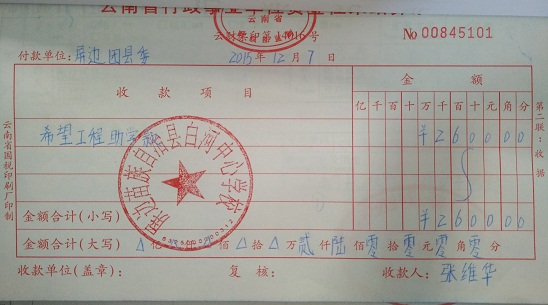 云南省行政事业单位资金往来结算
云南省
No 00845101
付款单位: 屏边团县委 2015年12月7日
收款项目 金额
亿 千 百 十 万 千 百 十 元 角 分
希望工程助学款 ¥ 2 6 0 0 0 0
屏边苗族自治县白河中心学校
金额合计(小写) ¥ 2 6 0 0 0 0
金额合计(大写) 亿 佰 拾 万 贰 仟 陆 佰 零 拾 零 元 零 角 零 分
收款单位(盖章): 复核: 收款人: 张维华
云南省国税印刷厂印制
第二联:收据